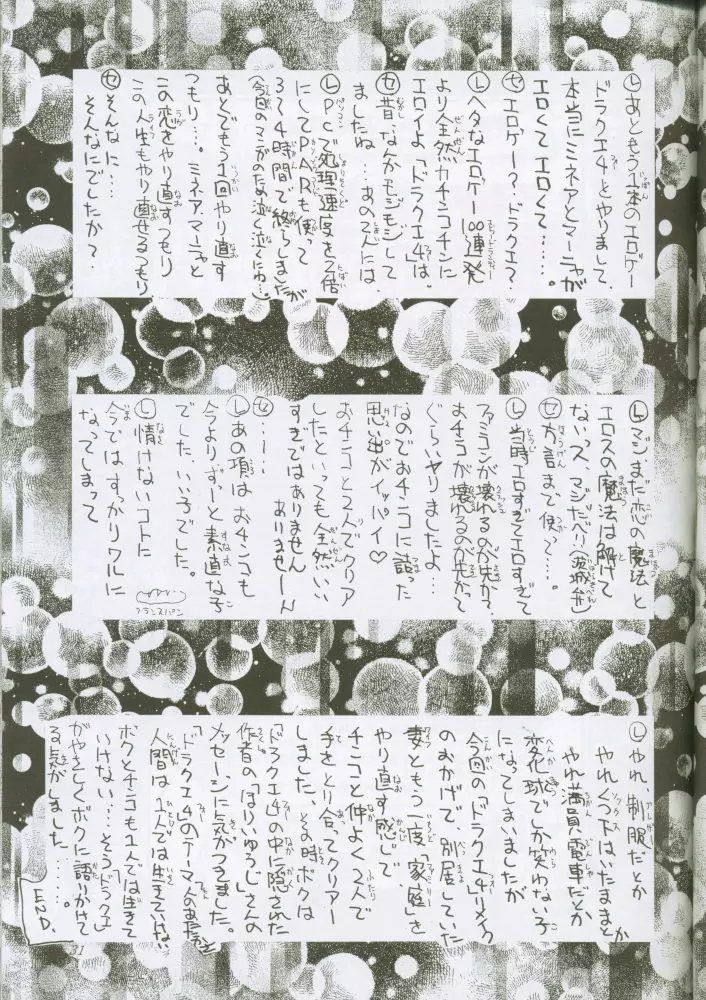 Ⓛあともう1本のエロゲー
ドラクエ4とやりまして、
本当にミネアとマーニャが
エロくてエロくて……。
㋝エロゲー??ドラクエ?
Ⓛヘタなエロゲー100連発
より全然カチンコチンに
エロイよ「ドラクエ4」は。
㋝昔、なんかモジモジして
ましたね…あの2人には、
ⓁPCで処理速度を2倍
にしてPARも使って
3〜4時間で終らしましたが
(今回のマンガの長泣く泣くにゅ…)
あとでもう1回やり直す
つもり…。ミネア、マーニャと
この恋をやり直すつもり
この人生もやり直せるつもり
㋝そんなに…
そんなにでしたか?
Ⓛマジ、まだ恋の魔法と
エロスの魔法は解けて
ないっス、マジだべリ(茨城弁)
㋝方言まで使って…。
Ⓛ当時エロすぎてエロすぎて
ファミコンが壊れるのが先か?
おチコが壊れるのが先かって
ぐらいヤリましたよ…
なのでおチンコに誤った
思い出がイッパイ♡
おチンコと2人でクリア
したといっても全然いい
すぎではありません
ありませーん
㋝……
Ⓛあの頃はおチンコも
今よりずーと素直な子
でした。いい子でした。
Ⓛ情けないコトに
今ではすっかりワルに
なってしまって
フランスパン
Ⓛやれ、制服だとか
やれくつ下はいたままとか
やれ満員電車だとか
変化球でしか笑わない子
になってしまいましたが
今回の「ドラクエ4」リメイク
のおかげで、別居していた
妻ともう一度「家庭」を
やり直す感じで、
チンコと仲よく2人で
手をとり合ってクリアー
しました。その時ボクは
「ドラクエ4」の中に隠された
作者の「ほりいゆうじ」さんの
メッセージに気がつきました。
「ドラクエ4」のテーマ
人間は1人では生きていけない
ボクとチンコも1人では生きて
いけない…そうドラクエ
がやさしくボクに語りかけて
る気がしました……。
END.
31